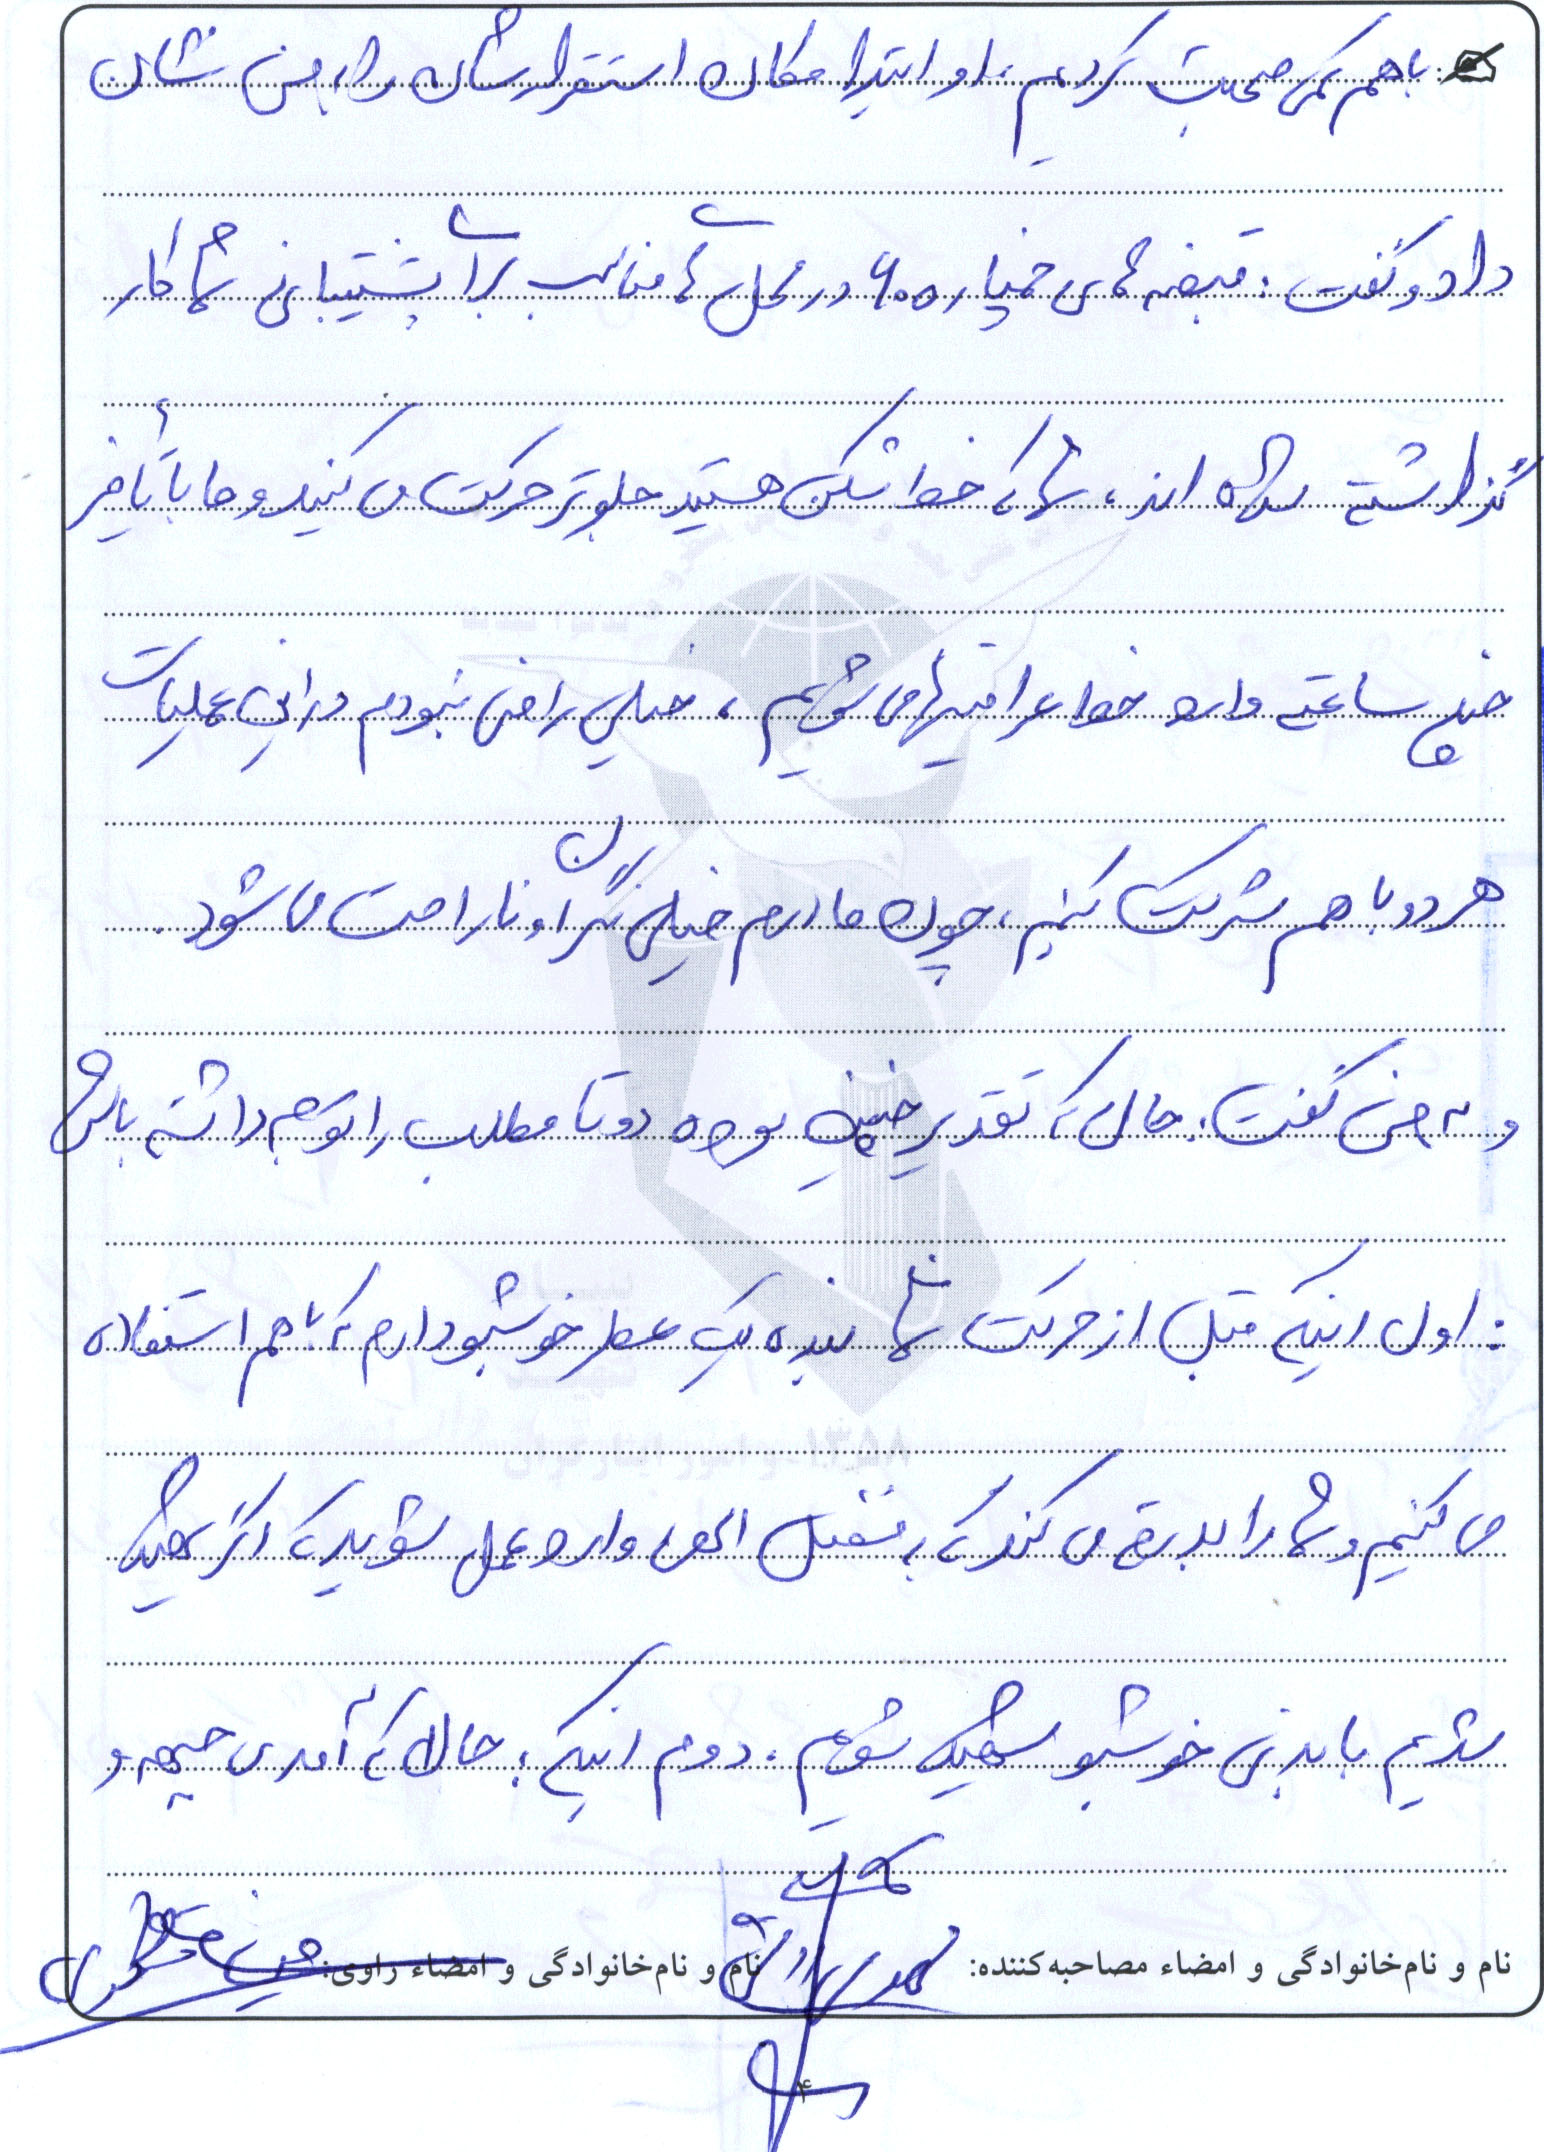 باهم کمی صحبت کردیم، او ابتدا مکان استقرارشان را به من نشان
داد و گفت: قبضه های خمپاره ۶۰ در محل های مناسب برای پشتیبانی شما کار
گذاشته شده اند، شما که خط شکن هستید جلوتر حرکت می کنید و ما با تأخیر
چند ساعتی وارد خط عراقیها می شویم، خیلی راضی نبودم در این عملیات
هر دو با هم شرکت کنیم، چون مادرم خیلی نگران و ناراحت می شود.
و به من گفت: حال که تقدیر چنین بوده دو تا مطلب را توجه داشته باش
: اول اینکه قبل از حرکت شما بنده یک عطر خوشبو دارم که با هم استفاده
می کنیم و شما را بدرقه می کنم که به فضل الهی وارد عمل شوید که اگر شهید
شدیم با بدنی خوشبو شهید شویم. دوم اینکه: حالا که آمدی جبهه و
نام و نام‌خانوادگی و امضاء مصاحبه‌کننده:
نام و نام‌خانوادگی و امضاء راوی:
۴